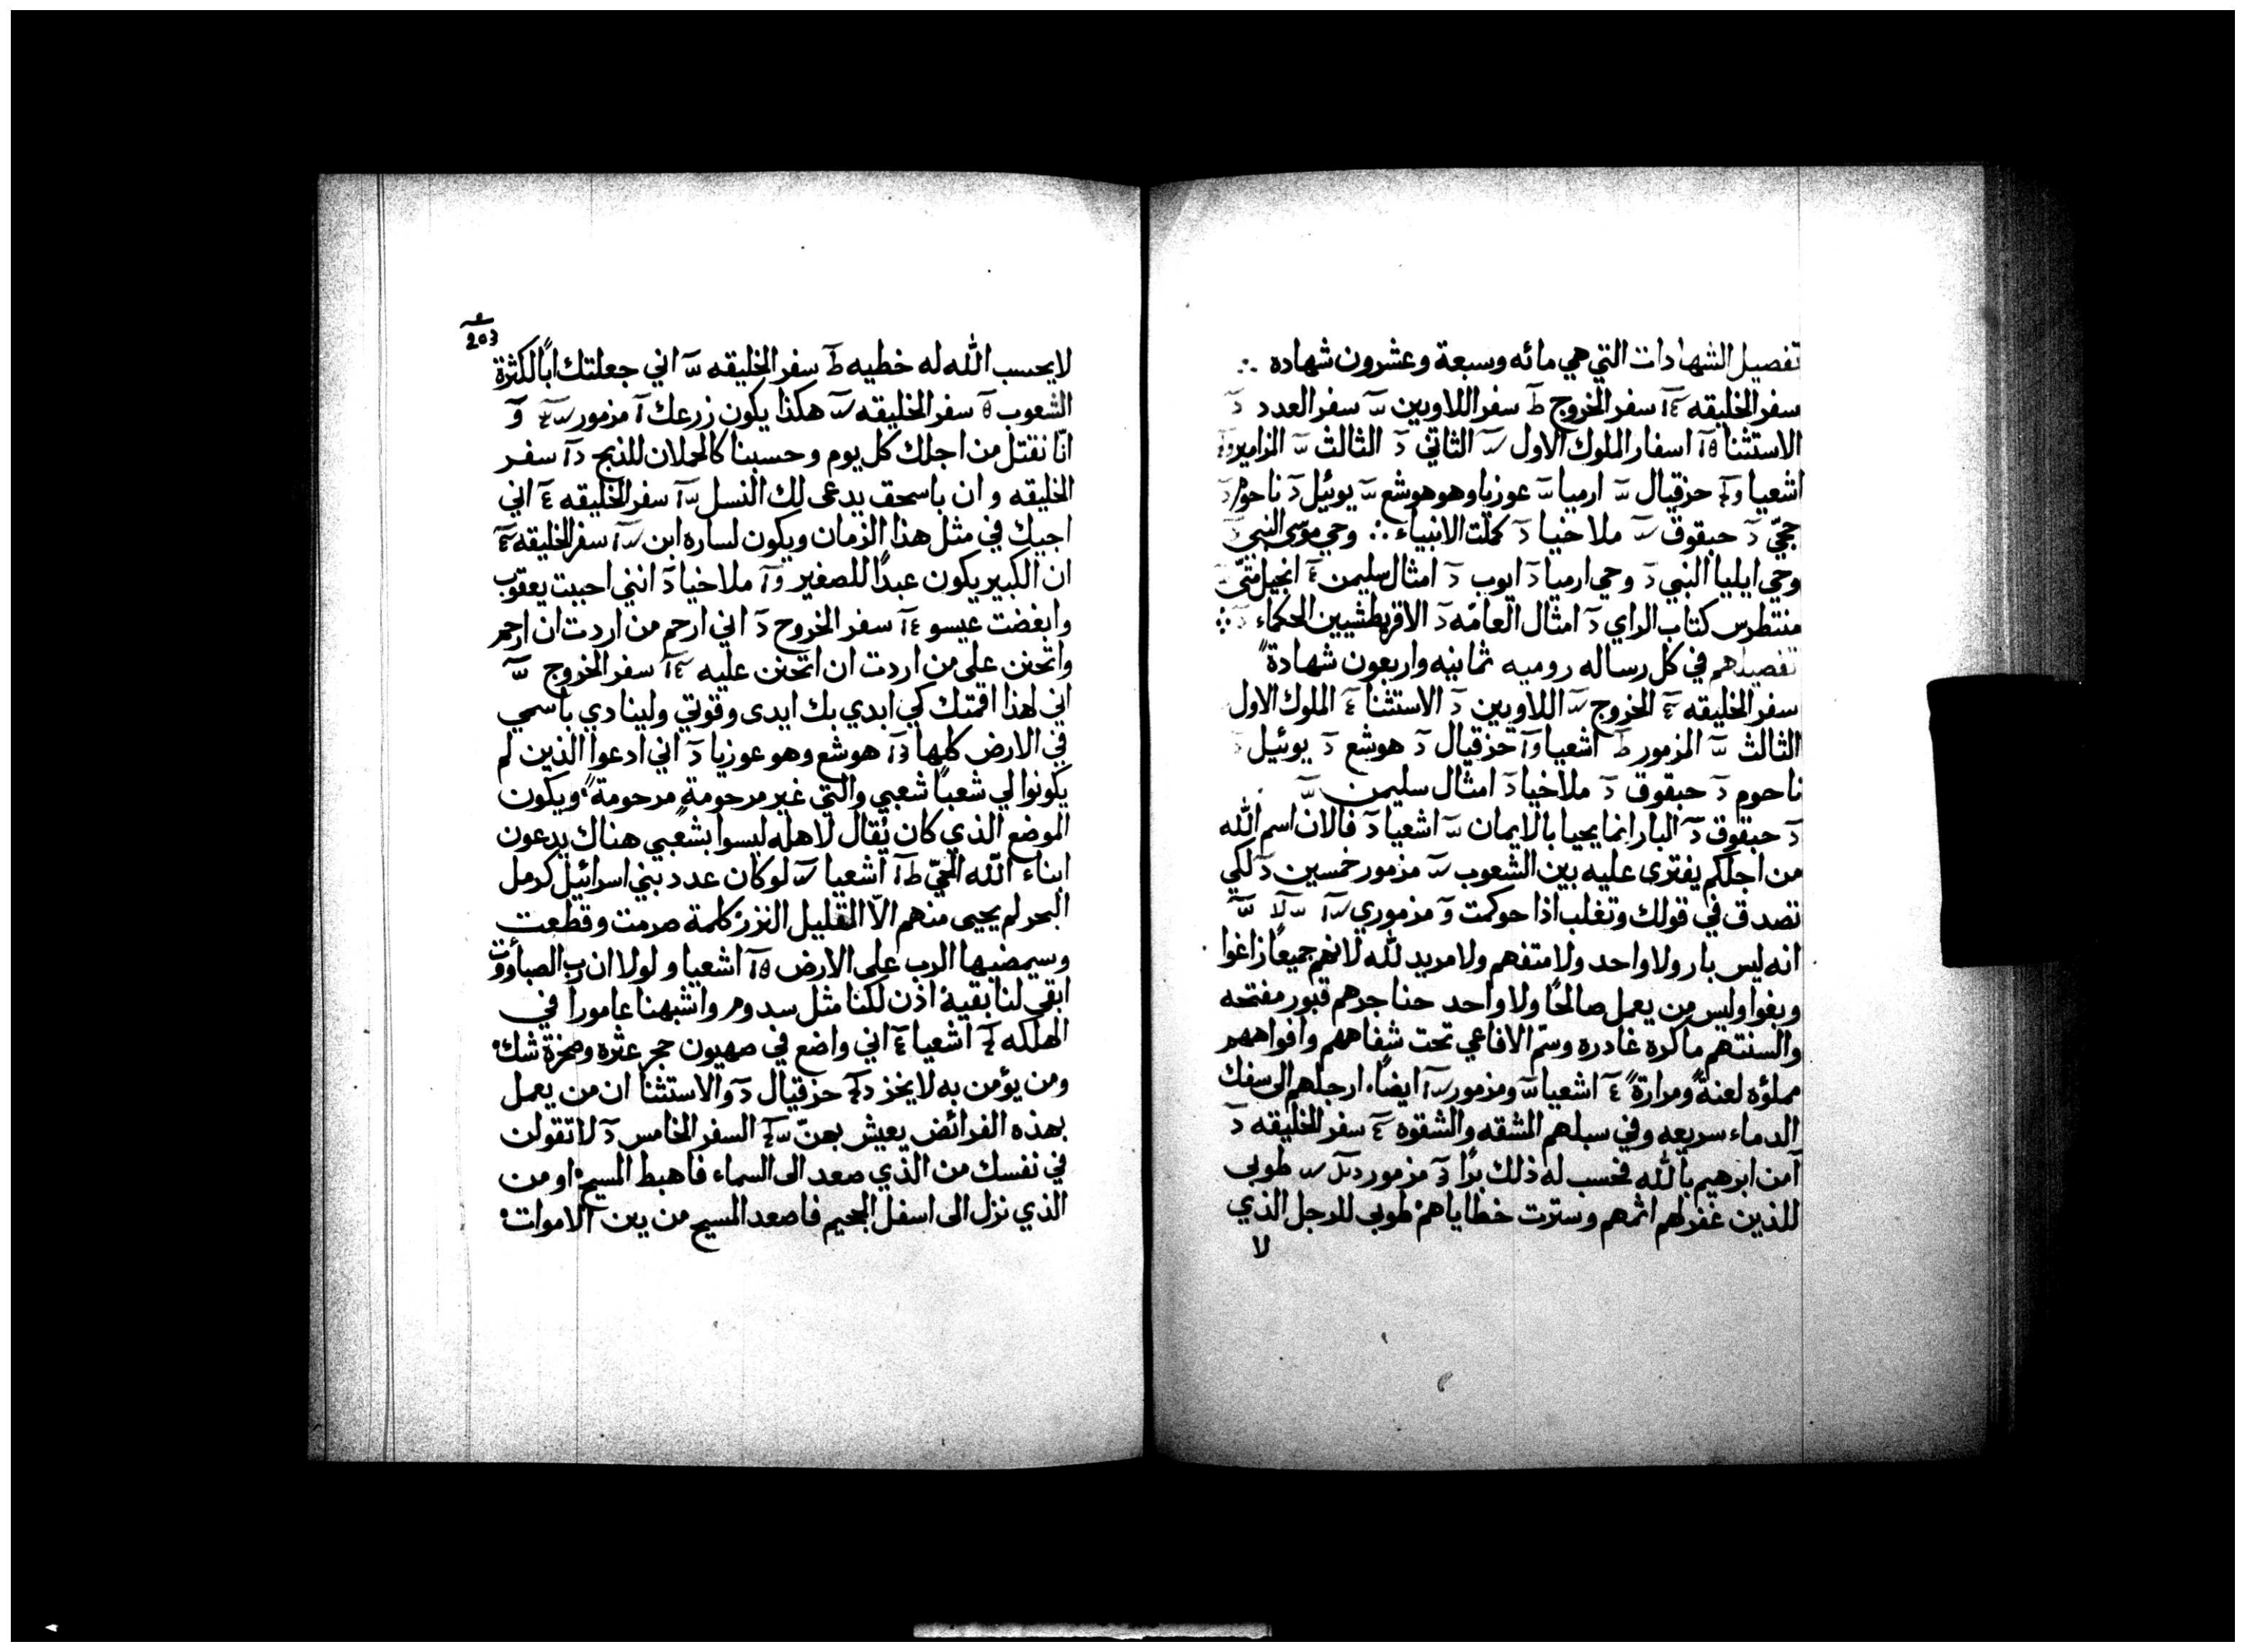 تفصيل الشهادات التي هي مائه وسبعة وعشرون شهاده ∴
سفر الخليقه سفر الخروج سفر اللاويين سفر العدد
الاستثنا اسفار الملوك الاول الثاني الثالث المزامير
اشعيا حزقيال ارميا عوزيا وهو هوشع يوئيل ناحوم
حجّي حبقوق ملاخيا كملت الانبياء ∴ وحي موسى النبي
وحي ايليا النبي وحي ارميا ايوب امثال سليمن انجيل متّى
منتطرس كتاب الراي امثال العامّه الاقريطشيين الحكماء
تفصيلهم في كل رساله روميه ثمانيه واربعون شهادةً
سفر الخليقه الخروج اللاويين الاستثنا الملوك الاول
الثالث المزمور اشعيا حزقيال هوشع يوئيل
ناحوم حبقوق ملاخيا امثال سليمن
حبقوق البار انما يحيا بالايمان اشعيا فالان اسم الله
من اجلكم يفترى عليه بين الشعوب مزمور خمسين لكي
تصدق في قولك وتغلب اذا حوكمت مزموري
انه ليس بار ولا واحد ولا متفهم ولا مريد لله لانهم جميعًا زاغوا
وبغوا وليس من يعمل صالحًا ولا واحد حناجرهم قبور مفتحه
والسنتهم ماكره غادره وسمّ الافاعي تحت شفاههم وافواههم
مملؤه لعنةً ومرارةً اشعيا ومزمور ايضًا ارجلهم الى سفك
الدماء سريعه وفي سبلهم المشقه والشقوه سفر الخليقه
آمن ابرهيم بالله فحسب له ذلك برًا مزمور طوبى
للذين غفر لهم اثمهم وسترت خطاياهم طوبى للرجل الذي
لا
203
لا يحسب الله له خطيه سفر الخليقه اني جعلتك ابًا لكثرة
الشعوب سفر الخليقه هكذا يكون زرعك مزمور
انّا نقتل من اجلك كل يوم وحسبنا كالحملان للذبح سفر
الخليقه وان باسحق يدعى لك النسل سفر الخليقه اني
اجيك في مثل هذا الزمان ويكون لساره ابن سفر الخليقه
ان الكبير يكون عبدًا للصغير ملاخيا انني احببت يعقوب
وابغضت عيسو سفر الخروج اني ارحم من اردت ان ارحم
واتحنن على من اردت ان اتحنن عليه سفر الخروج
اني لهذا اقمتك كي ابدي بك ايدى وقوتي ولينادي باسمي
في الارض كلها هوشع وهو عوزيا اني ادعوا الذين لم
يكونوا لي شعبًا شعبي والتي غير مرحومة مرحومة ويكون
الموضع الذي كان يُقال لاهله ليسوا بشعبي هناك يدعون
ابناء الله الحيّ اشعيا لو كان عدد بني اسرائيل كرمل
البحر لم يحيى منهم الّا القليل النزر كلمة صرمت وقطعت
وسيمضيها الرب على الارض اشعيا ولولا ان رب الصباؤوت
ابقى لنا بقية اذن لكنا مثل سدوم واشبهنا عامورا في
الهلكه اشعيا اني واضع في صهيون حجر عثره وصخرة شك
ومن يؤمن به لا يخز حزقيال والاستثنا ان من يعمل
بهذه الفرائض يعيش بهنّ السفر الخامس لا تقولن
في نفسك من الذي صعد الى السماء فاهبط المسيح او من
الذي نزل الى اسفل الجحيم فاصعد المسيح من بين الاموات